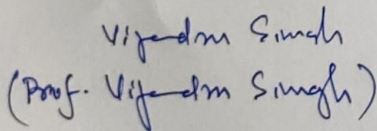 Vijendra Singh
(Prof. Vijendra Singh)